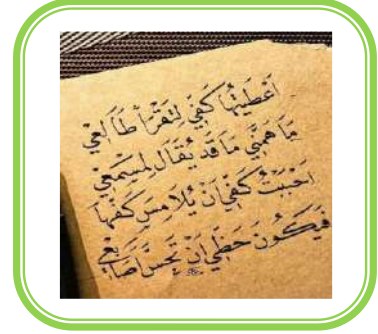 أَعْطَيْتُهَا كَفِّي لِتَقْرَأَ طَالَعِيْ
مَا هَمَّنِي مَا قَد يُقَال لِمَسْمَعِيْ
احْبَبْتُ كَفِّي أنْ يُلَامِسَ كَفَّهَا
فَيَكُونَ حَظِّي أنْ تَحُسَّ أصَابِعِيْ